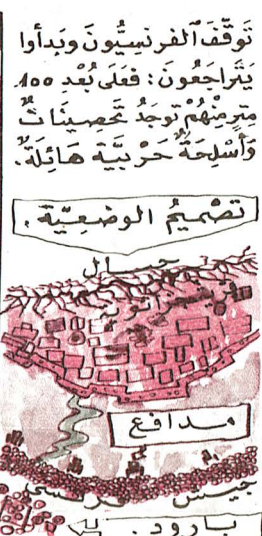 تَوَقَّفَ ٱلفرنسِيُّونَ وَبَدأوا
يَتَرَاجَعُونَ : فَعَلَى بُعْدِ 100
مِترٍ مِنْهُمْ تُوجَدُ تَحْصِينَاتٌ
وَأَسْلِحَةٌ حَرْبِيَّة هَائِلَةٌ.
تَصْمِيمُ الوضعِيَّة.
جبال
مدافع
جيش
بارود.